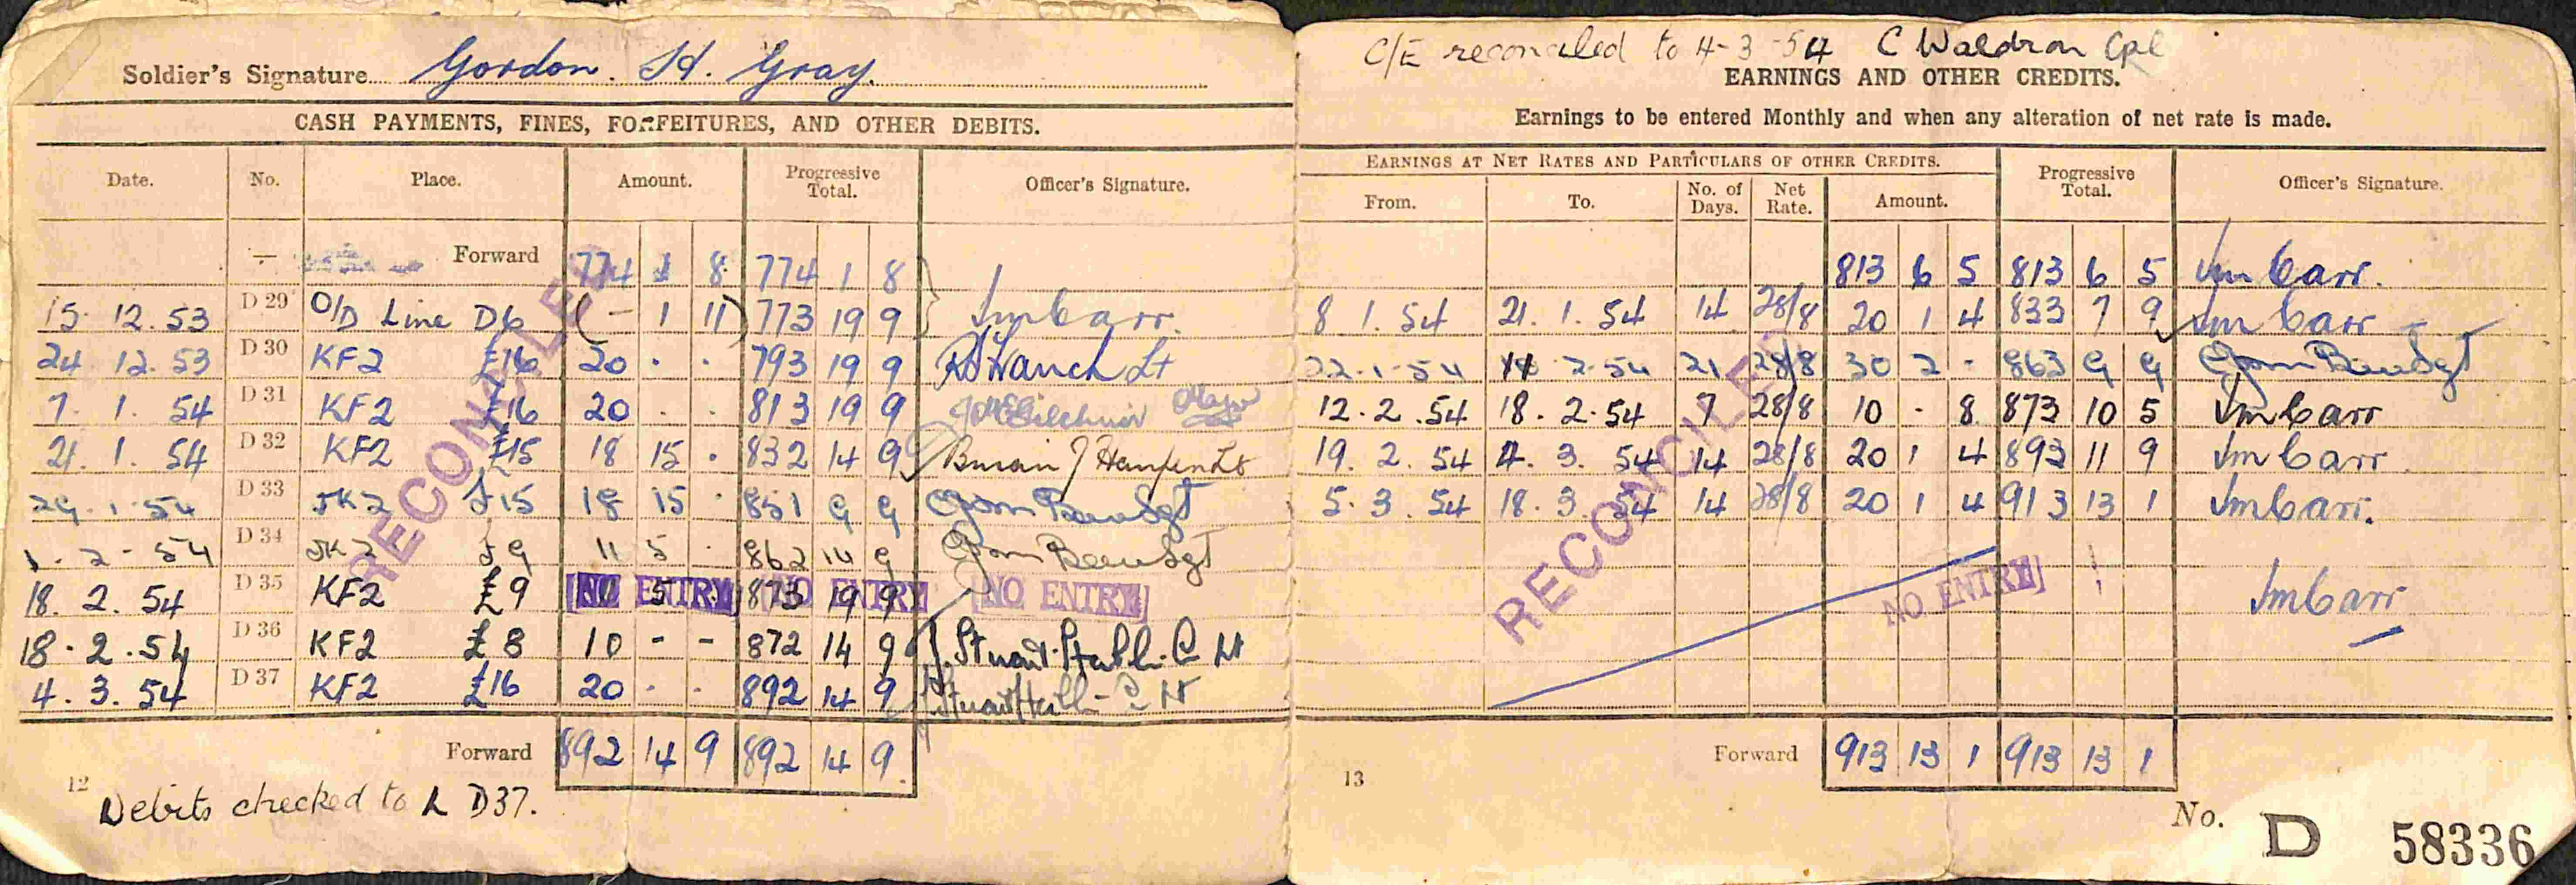 Soldier's Signature Gordon. H. Gray.
CASH PAYMENTS, FINES, FORFEITURES, AND OTHER DEBITS.
Date. No. Place. Amount. Progressive Total. Officer's Signature.
— Forward 774 1 8 774 1 8
15. 12. 53 D 29 O/D Line D6 (- 1 11) 773 19 9 Jm Carr.
24 12. 53 D 30 KF2 £16 20 . . 793 19 9 Lt
7. 1. 54 D 31 KF2 £16 20 . . 813 19 9 Major
21. 1. 54 D 32 KF2 £15 18 15 . 832 14 9 Lt
29. 1. 54 D 33 JK2 £15 18 15 . 851 9 9 Sgt
1. 2 - 54 D 34 JK2 £9 11 5 . 862 14 9 Sgt
18. 2. 54 D 35 KF2 £9 11 5 873 19 9
NO ENTRY NO ENTRY NO ENTRY
18. 2. 54 D 36 KF2 £8 10 - - 872 14 9 J. Stuart Lt
4. 3. 54 D 37 KF2 £16 20 . . 892 14 9 J. Stuart Lt
RECONCILED
Forward 892 14 9 892 14 9
12
Debits checked to D37.
C/E reconciled to 4-3-54 C Waldron Cpl
EARNINGS AND OTHER CREDITS.
Earnings to be entered Monthly and when any alteration of net rate is made.
EARNINGS AT NET RATES AND PARTICULARS OF OTHER CREDITS. Progressive Total. Officer's Signature.
From. To. No. of Days. Net Rate. Amount.
813 6 5 813 6 5 Jm Carr.
8 1. 54 21. 1. 54 14 28/8 20 1 4 833 7 9 Jm Carr
22. 1. 54 11 2. 54 21 28/8 30 2 - 863 9 9 Sgt
12. 2. 54 18. 2. 54 7 28/8 10 - 8 873 10 5 Jm Carr
19. 2. 54 4. 3. 54 14 28/8 20 1 4 893 11 9 Jm Carr
5. 3. 54 18. 3 54 14 28/8 20 1 4 913 13 1 Jm Carr.
NO ENTRY Jm Carr
RECONCILED
Forward 913 13 1 913 13 1
13
No. D 58336